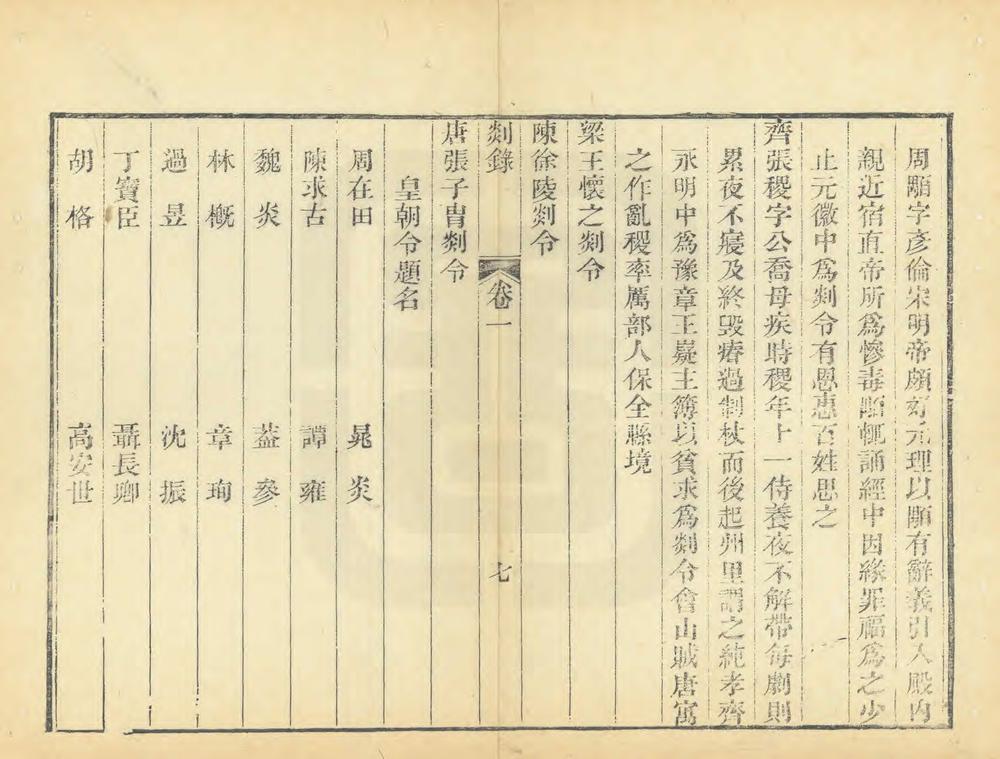 周顒字彥倫宋明帝頗好元理以顒有辭義引入殿内
親近宿直帝所爲慘毒顒輒誦經中因緣罪福爲之少
止元徽中爲剡令有恩惠百姓思之
齊張稷字公喬母疾時稷年十一侍養夜不解帶每劇則
累夜不寢及終毀瘠過制杖而後起州里謂之純孝齊
永明中爲豫章王嶷主簿以貧求爲剡令會山賊唐寓
之作亂稷率厲部人保全縣境
梁王懷之剡令
陳徐陵剡令
剡錄 卷一 七
唐張子胄剡令
皇朝令題名
周在田 晁炎
陳求古 譚雍
魏炎 蓋參
林概 章珣
過昱 沈振
丁寶臣 聶長卿
胡格 高安世